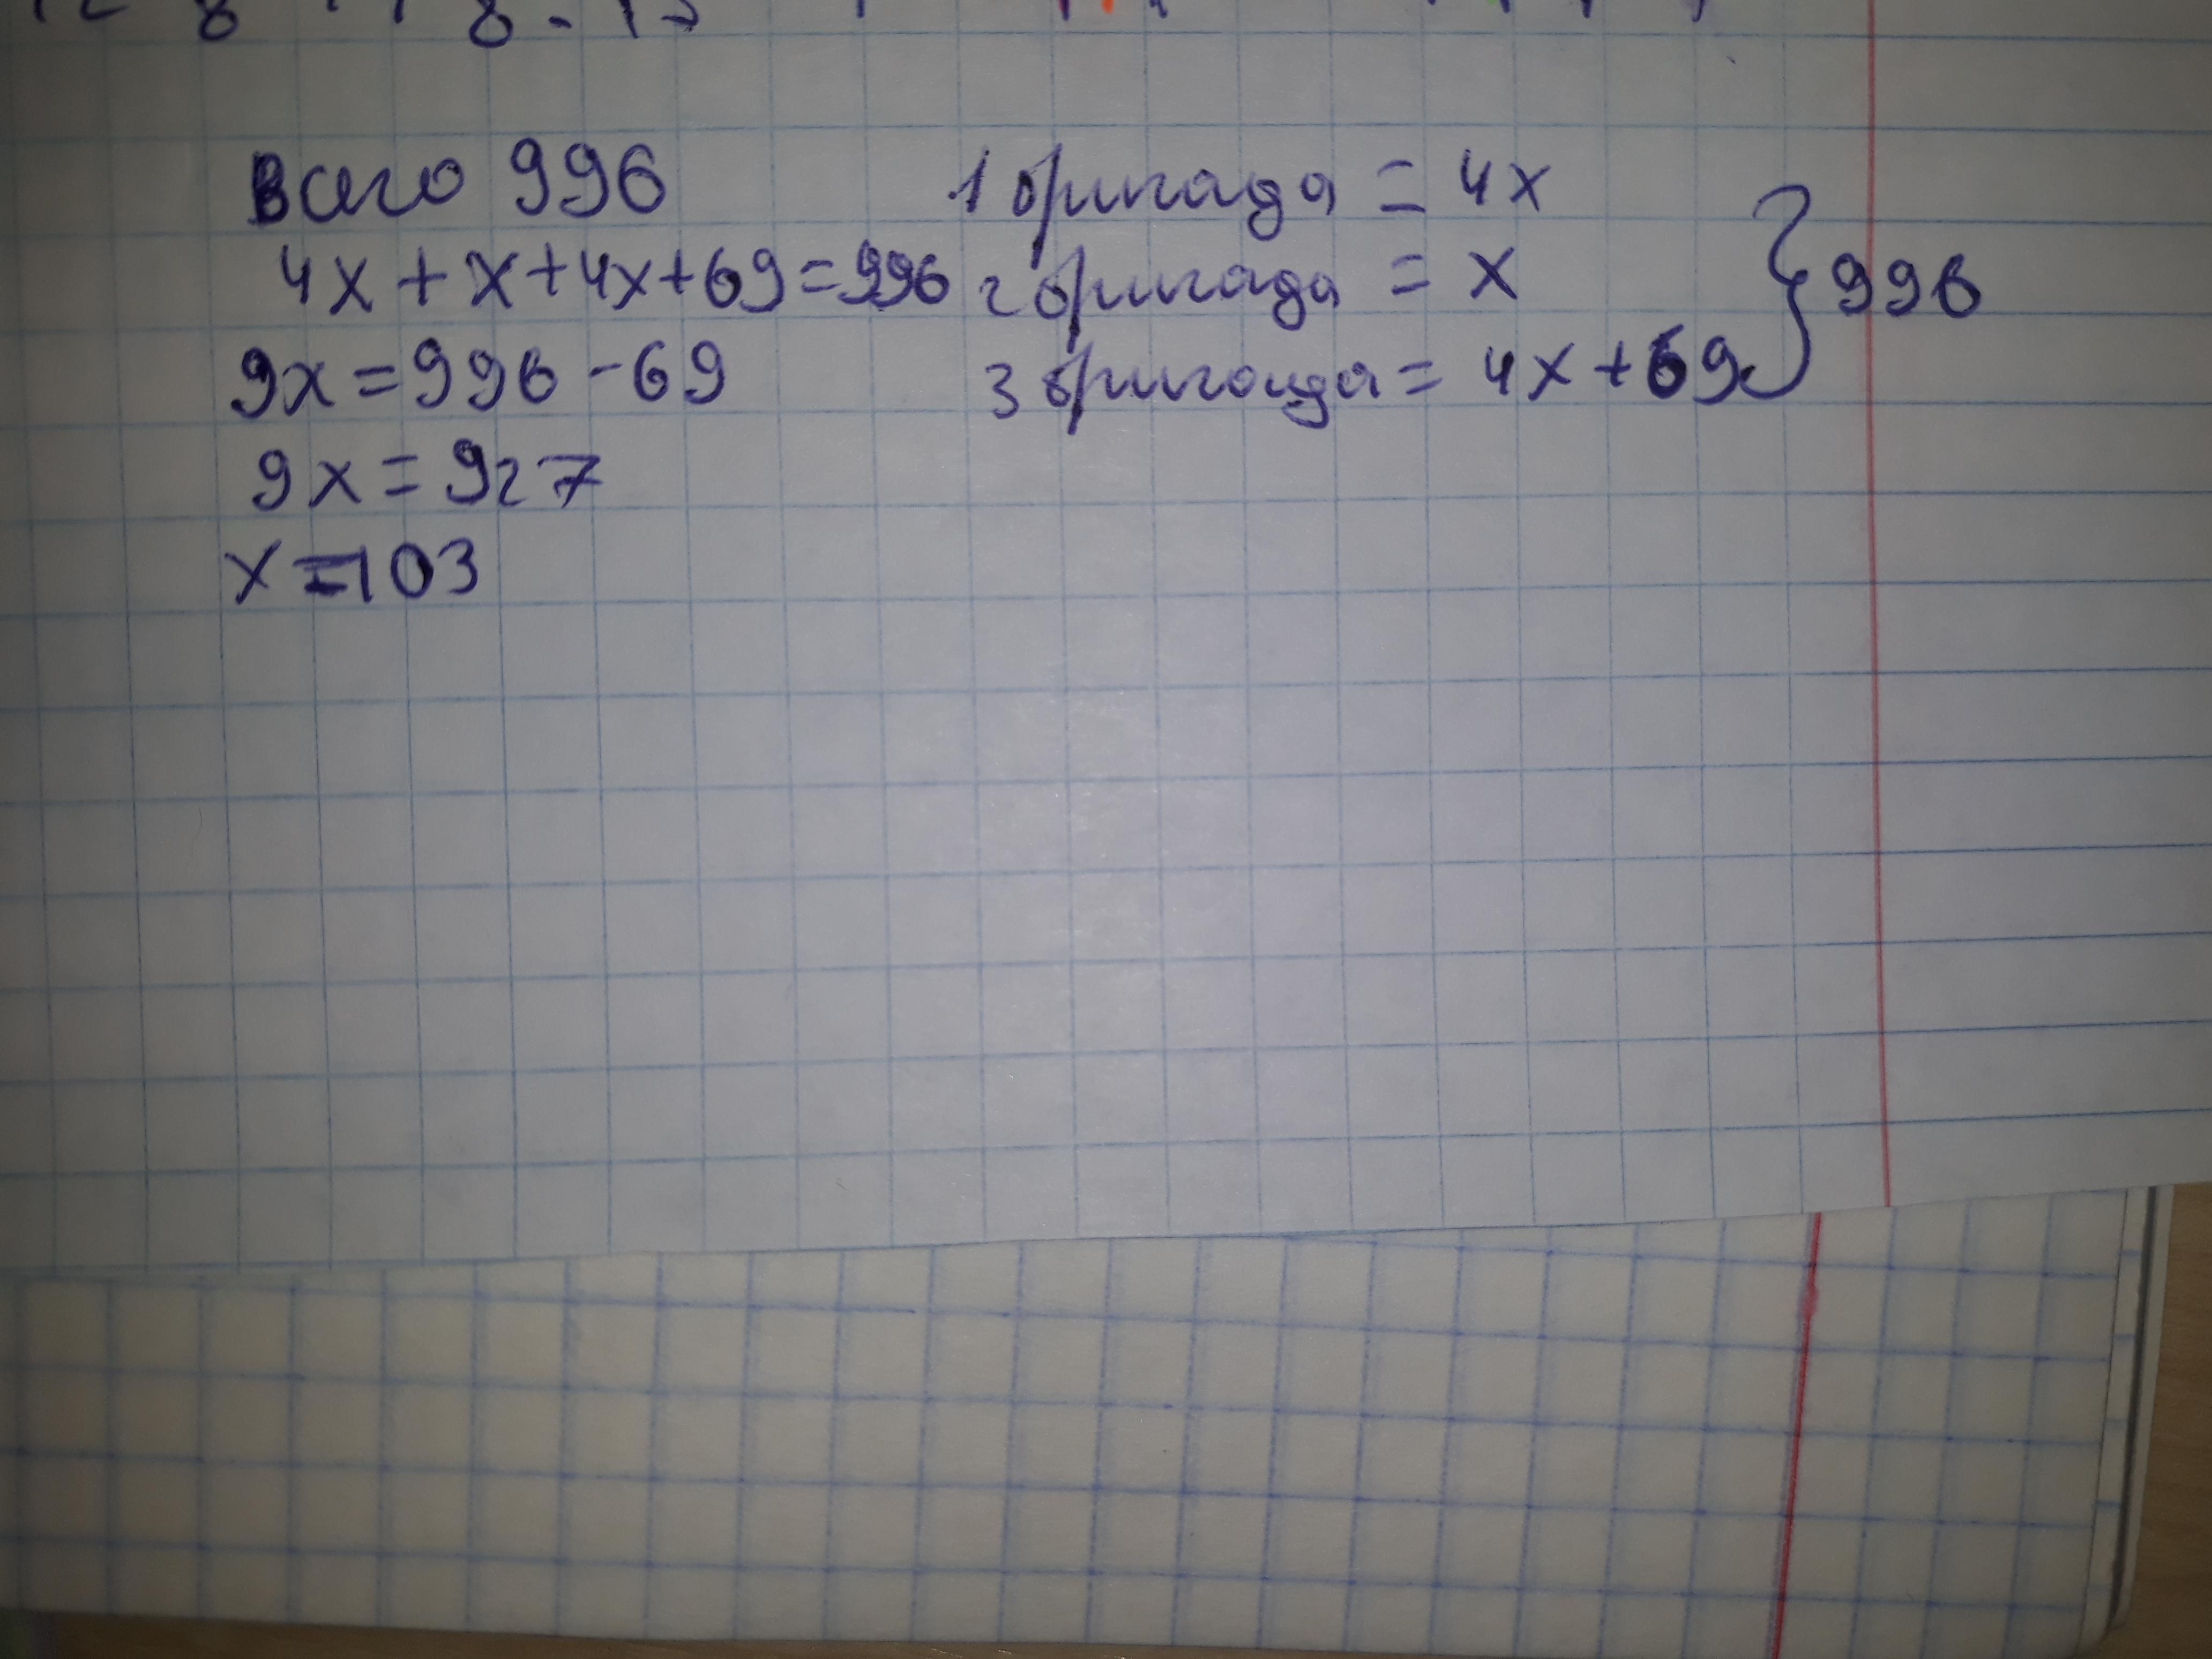 Всего 996
4x + x + 4x + 69 = 996
9x = 996 - 69
9x = 927
x = 103
1 бригада = 4x
2 бригада = x
3 бригада = 4x + 69
} 996